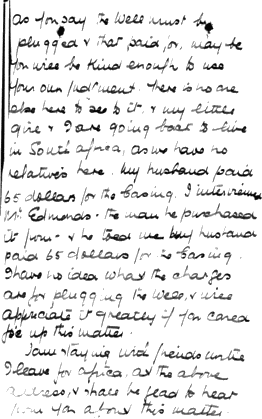 As you say the Well must be
plugged & that paid for, may be
you will be kind enough to use
your own judgment. There is no one
else here to see to it, & my little
girl & I are going back to live
in South Africa, as we have no
relatives here. My husband paid
65 dollars for the Casing. I interviewed
Mr. Edmonds - the man he purchased
it from - & he told me my husband
paid 65 dollars for the Casing.
I have no idea what the charges
are for plugging the Well, & will
appreciate it greatly if you could
fix up this matter.
I am staying with friends until
I leave for Africa, at the above
address, & shall be glad to hear
from you about this matter.